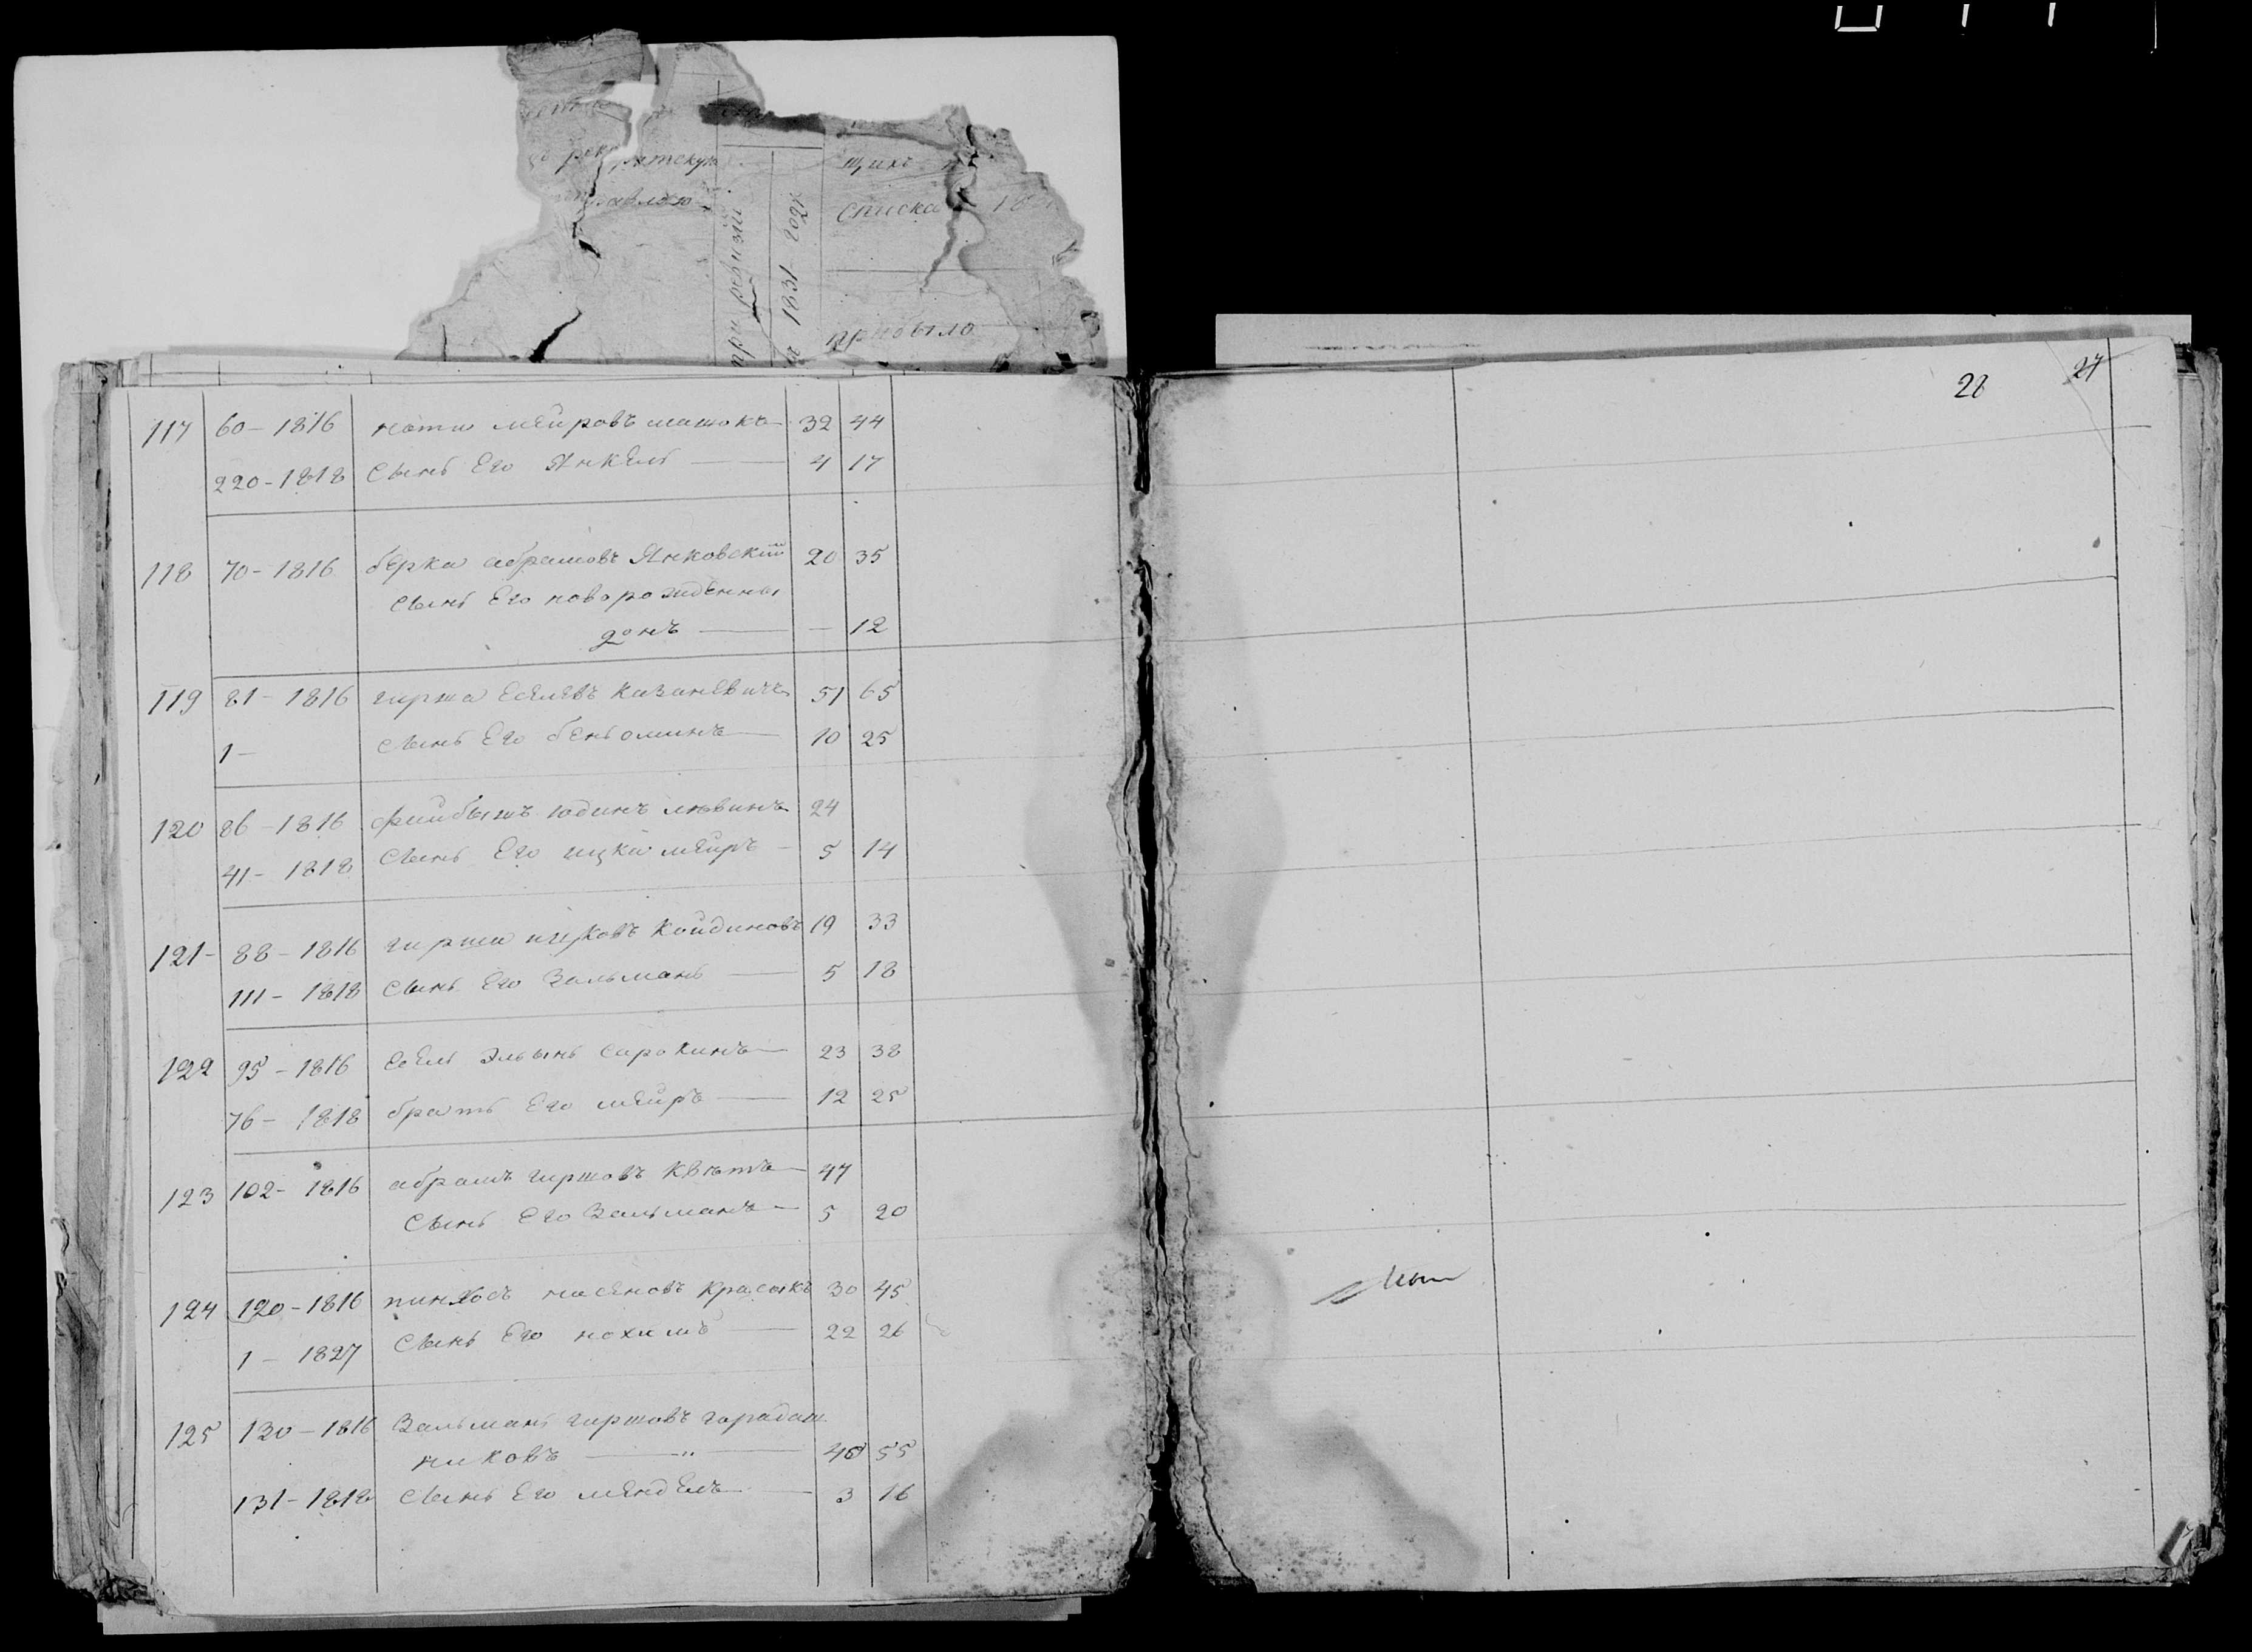 рекрутскую
щихъ
списка
при ревизіи
1831 года
прибыло
28 27
117 60 – 1816 мейровъ 32 44
220 – 1818 сынъ Его Янкель 4 17
118 70 – 1816 берка абрамовъ Янковскій 20 35
сынъ Его новорожденны
12
119 81 – 1816 гирша Еселевъ казаневичъ 51 65
1 – сынъ Его беньоминъ 10 25
120 86 – 1816 файбышъ юдинъ левинъ 24
41 – 1818 сынъ Его ицка мейръ 5 14
121 – 88 – 1816 гирша ицковъ койдановъ 19 33
111 – 1818 сынъ Его Зальманъ 5 18
122 95 – 1816 Есель сарокинъ 23 38
76 – 1818 братъ Его мейръ 12 25
123 102 – 1816 абрамъ гиршовъ квятъ 47
сынъ Его Зальманъ 5 20
124 120 – 1816 пинхосъ 30 45
1 – 1827 сынъ Его нохимъ 22 26
125 130 – 1816 Зальманъ гиршовъ
никовъ 55
131 – 1818 сынъ Его мендель 3 16